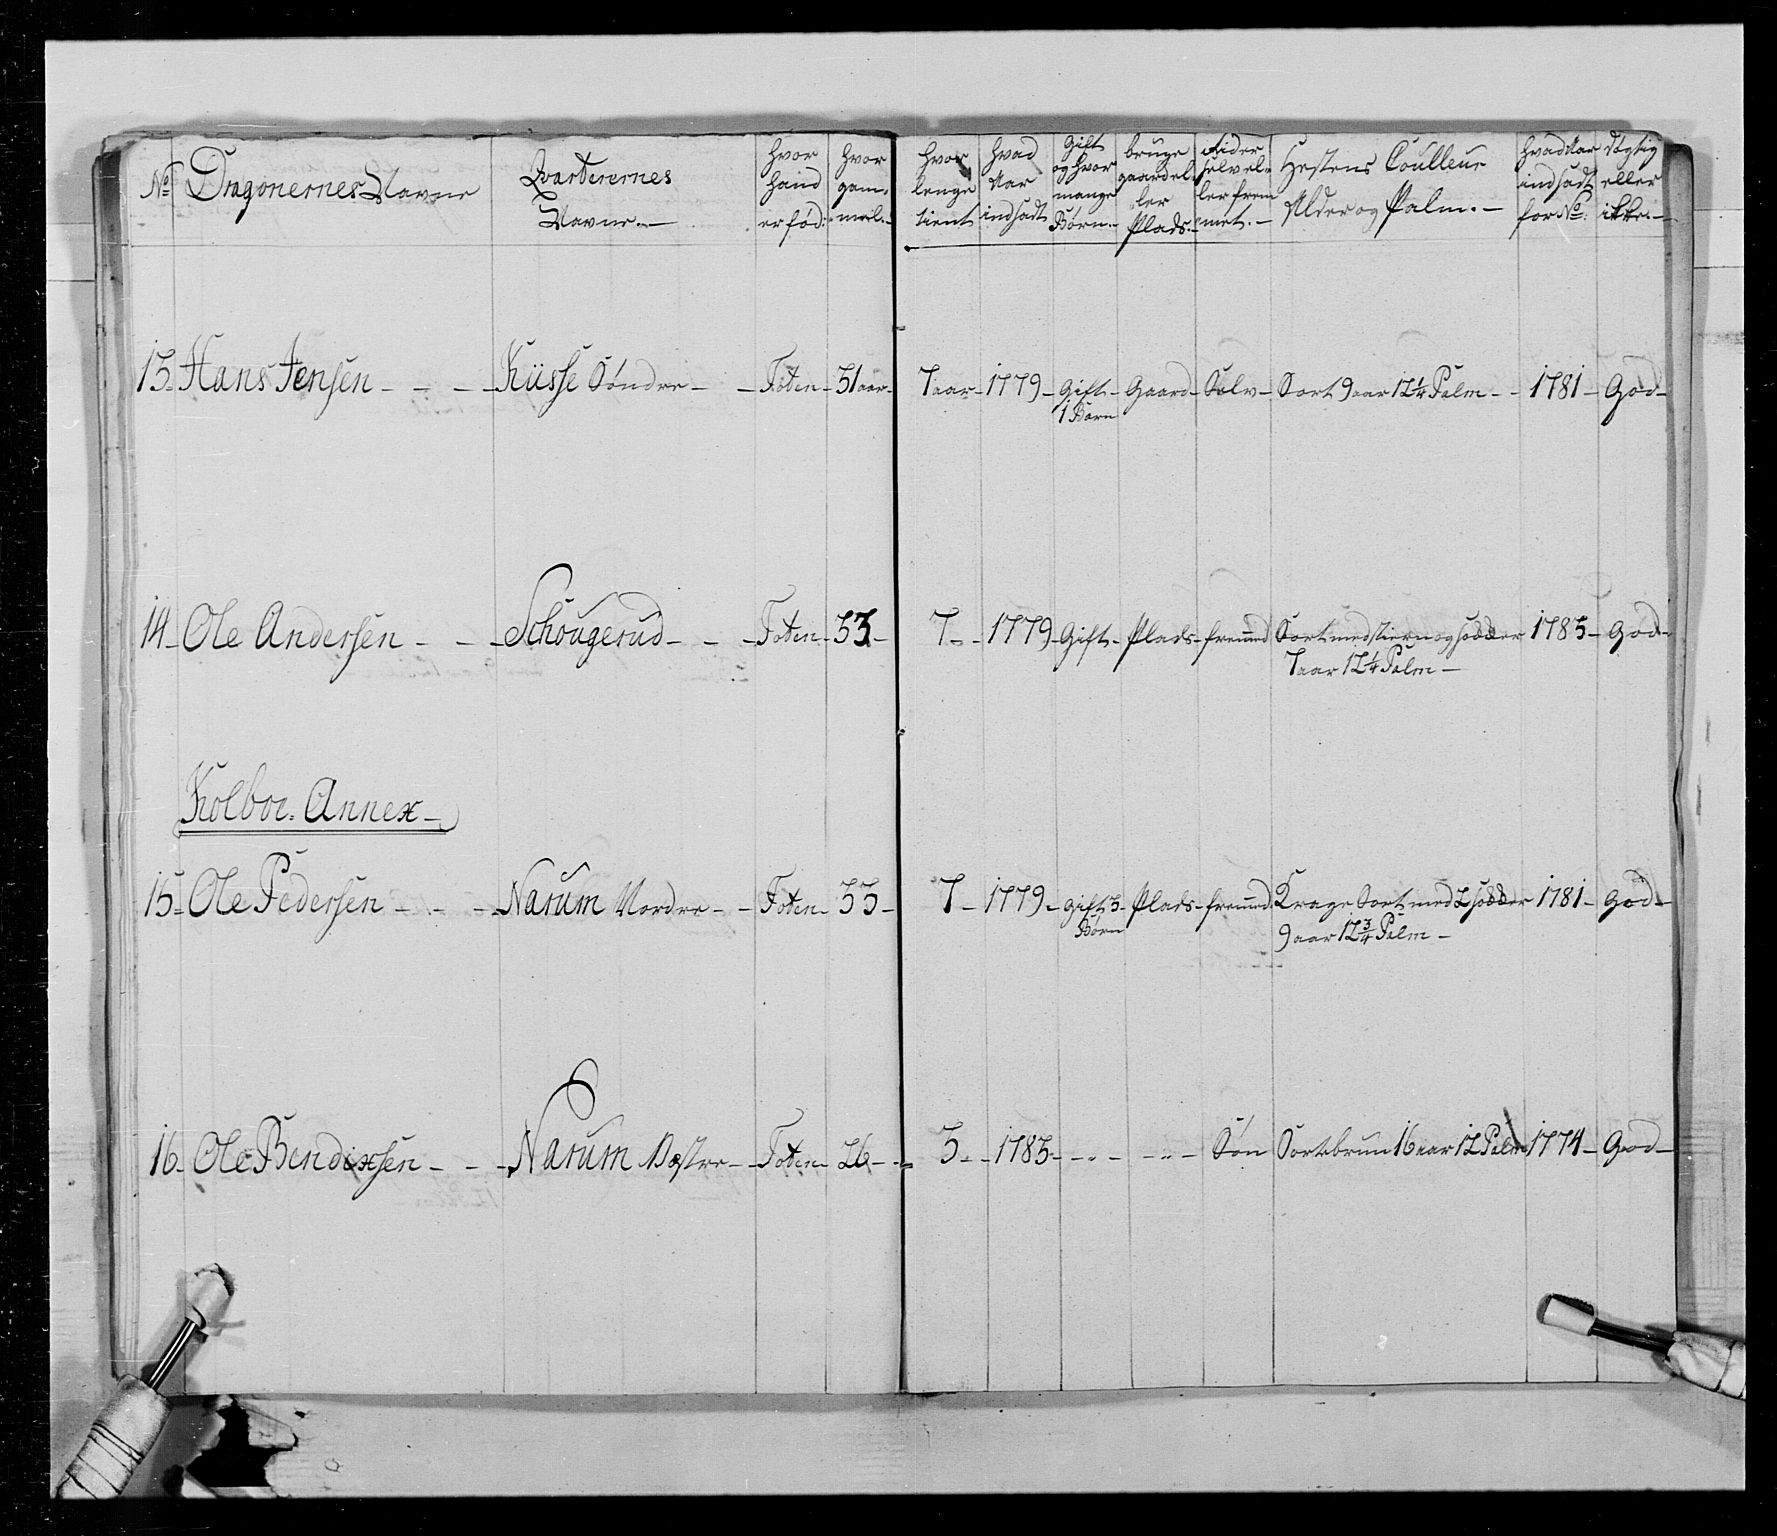 No Dragonernes Navne | Qvarterernes Navne.— | hvor hand er fød: | hvor gam- mel.- | hvor lenge tient | hvad Aar indsadt | Gift og hvor mange Børn.- | bruge gaard el- ler Plads.- | Rider selv el- ler frem met.- | Hestens Coulleur Alder og Palm.- | hvad Aar indsadt for No: | dygtig eller ikke.-
13- Hans Jensen - - - Küsse Søndre - - Toten - 31 aar - 7 aar - 1779 - Gift - Gaard - Selv - Sort 9 aar 12 1/4 Palm - - 1781 - God -
1 Børn
14- Ole Andersen - - Schougerud - - - Toten - 33 - 7 - - 1779 - Gift - Plads - fremmed Sort med stiern og sødder 1783 - God -
7 aar 12 1/4 Palm -
Kolboe Annex -
15- Ole Pedersen - - - Narum Nordre - - Toten - 33 - 7 - 1779 - Gift 3 - Plads - fremmed Krage Sort med 2 sødder 1781 - God -
Børn 9 aar 12 3/4 Palm -
16- Ole Bendixsen - - - Narum Væstre - - Toten - 26 - - 3 - - 1783 - - - - - - - Søn Sortebrun 16 aar 12 Palm 1774 - God -